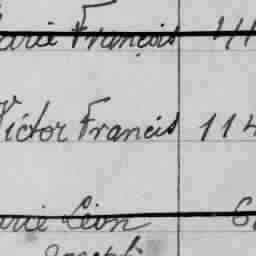 arie François 44
Victor Francis 114
arie Léon 6
Joseph